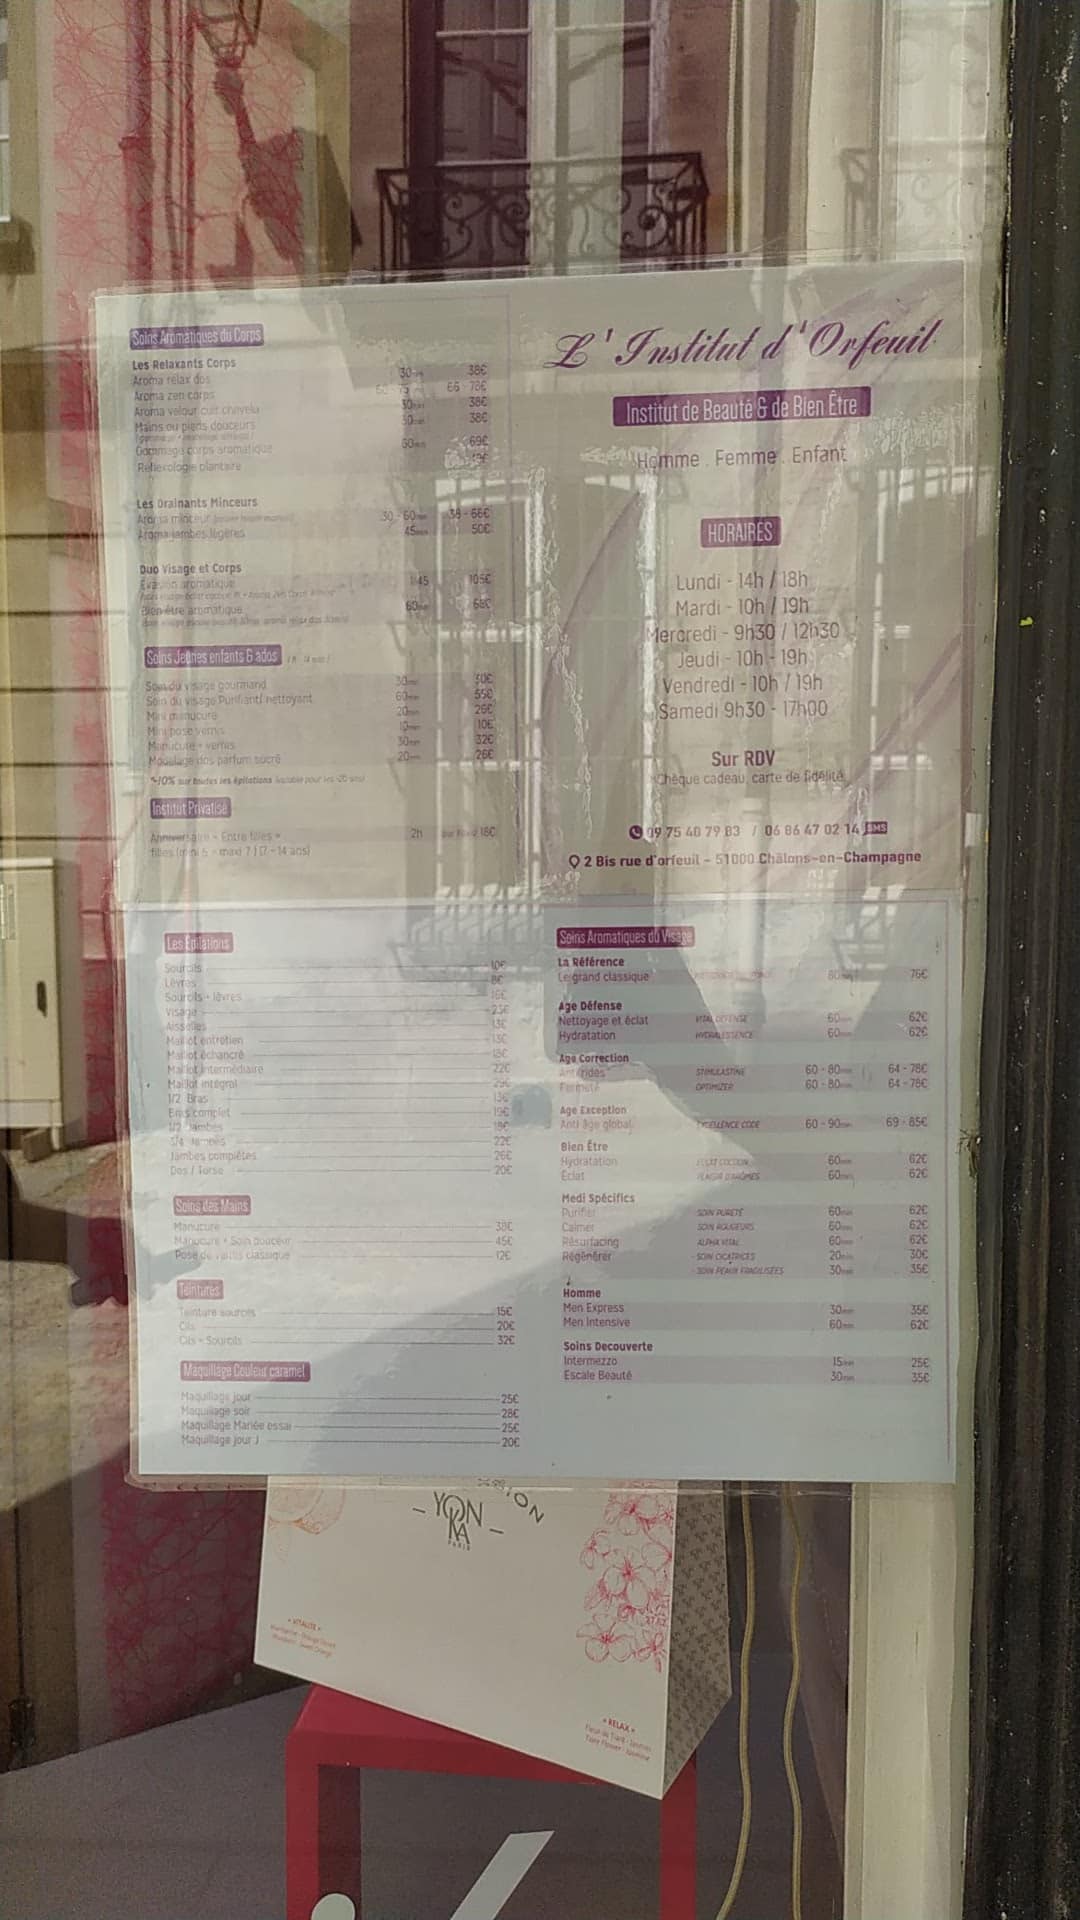 Soins Aromatiques du Corps
Les Relaxants Corps
Aroma relax dos 30min 38€
Aroma zen corps 60 - 75 66 - 78€
Aroma velour cuir chevelu 30min 38€
Mains ou pieds douceurs 30min 38€
Gommage corps aromatique 60min 69€
Réflexologie plantaire
Les Drainants Minceurs
Aroma minceur 30 - 60min 38 - 66€
Aroma jambes légères 45min 50€
Duo Visage et Corps
Evasion aromatique 1h45 105€
Bien être aromatique 60min 68€
Soins Jeunes enfants & ados
Soin du visage gourmand 30min
Soin du visage Purifiant/ nettoyant 60min 55€
Mini manucure 20min 26€
Mini pose vernis 10min 10€
Manucure + vernis 30min 32€
Modelage dos parfum sucré 20min 26€
*-10% sur toutes les épilations
Institut Privatisé
Anniversaire « Entre filles » 2h 18€
filles (mini 6 - maxi 7) (7 - 14 ans)
L'Institut d'Orfeuil
Institut de Beauté & de Bien Être
Homme . Femme . Enfant
HORAIRES
Lundi - 14h / 18h
Mardi - 10h / 19h
Mercredi - 9h30 / 12h30
Jeudi - 10h - 19h
Vendredi - 10h / 19h
Samedi 9h30 - 17h00
Sur RDV
Chèque cadeau, carte de fidélité
09 75 40 79 83 / 06 86 47 02 14 SMS
2 Bis rue d'orfeuil - 51000 Châlons-en-Champagne
Les Épilations
Sourcils 10€
Lèvres 8€
Sourcils + lèvres 16€
Visage 23€
Aisselles 13€
Maillot entretien 13€
Maillot échancré 18€
Maillot Intermédiaire 22€
Maillot intégral 29€
1/2 Bras 13€
Bras complet 19€
1/2 Jambes 18€
3/4 Jambes 22€
Jambes complètes 26€
Dos / Torse 20€
Soins des Mains
Manucure 38€
Manucure + Soin douceur 45€
Pose de vernis classique 12€
Teintures
Teinture sourcils 15€
Cils 20€
Cils + Sourcils 32€
Maquillage Couleur caramel
Maquillage jour 25€
Maquillage soir 28€
Maquillage Mariée essai 25€
Maquillage jour J 20€
Soins Aromatiques du Visage
La Référence
Le grand classique 76€
Age Défense
Nettoyage et éclat VITAL DEFENSE 60min 62€
Hydratation HYDRALESSENCE 60min 62€
Age Correction
Anti rides STIMULASTINE 60 - 80min 64 - 78€
Fermeté OPTIMIZER 60 - 80min 64 - 78€
Age Exception
Anti âge global EXCELLENCE CODE 60 - 90min 69 - 85€
Bien Être
Hydratation ECLAT COCOON 60min 62€
Eclat PLAISIR D'ARÔMES 60min 62€
Medi Spécifics
Purifier SOIN PURETÉ 60min 62€
Calmer SOIN ROUGEURS 60min 62€
Résurfacing ALPHA VITAL 60min 62€
Régénérer - SOIN CICATRICES 20min 30€
- SOIN PEAUX FRAGILISÉES 30min 35€
Homme
Men Express 30min 35€
Men Intensive 60min 62€
Soins Decouverte
Intermezzo 15min 25€
Escale Beauté 30min 35€
YON
KA
PARIS
« VITALITÉ »
« RELAX »
Fleur de Tiaré - Jasmin
Tiare Flower - Jasmine